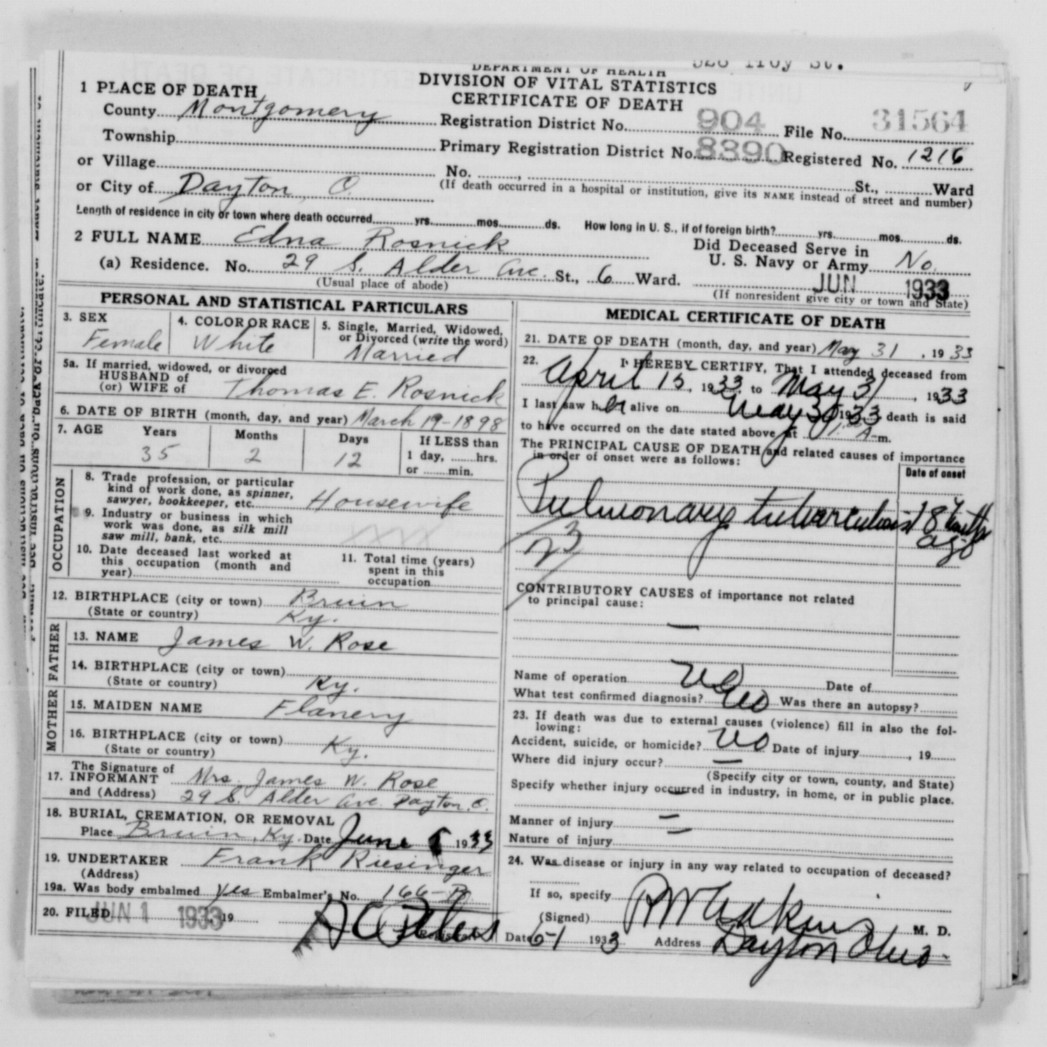 DEPARTMENT OF HEALTH
DIVISION OF VITAL STATISTICS
CERTIFICATE OF DEATH
1 PLACE OF DEATH
County Montgomery
Registration District No. 904 File No. 31564
Township
Primary Registration District No. 8390 Registered No. 1216
or Village
No. St., Ward
or City of Dayton, O
(If death occurred in a hospital or institution, give its NAME instead of street and number)
Length of residence in city or town where death occurred yrs. mos. ds. How long in U. S., if of foreign birth? yrs. mos. ds.
2 FULL NAME Edna Rosnick
Did Deceased Serve in
U. S. Navy or Army No
(a) Residence. No. 29 S. Alder Ave. St., 6 Ward.
(Usual place of abode)
JUN 1933
(If nonresident give city or town and State)
PERSONAL AND STATISTICAL PARTICULARS
3. SEX
Female
4. COLOR OR RACE
White
5. Single, Married, Widowed,
or Divorced (write the word)
Married
5a. If married, widowed, or divorced
HUSBAND of
(or) WIFE of Thomas E. Rosnick
6. DATE OF BIRTH (month, day, and year) March 19-1898
7. AGE Years Months Days If LESS than
1 day, hrs.
or min.
35 2 12
OCCUPATION
8. Trade profession, or particular
kind of work done, as spinner,
sawyer, bookkeeper, etc. Housewife
9. Industry or business in which
work was done, as silk mill
saw mill, bank, etc.
10. Date deceased last worked at
this occupation (month and
year)
11. Total time (years)
spent in this
occupation
12. BIRTHPLACE (city or town) Bruin
(State or country) Ky.
FATHER
13. NAME James W. Rose
14. BIRTHPLACE (city or town)
(State or country) Ky.
MOTHER
15. MAIDEN NAME Flanery
16. BIRTHPLACE (city or town)
(State or country) Ky.
17. The Signature of
INFORMANT Mrs. James W. Rose
and (Address) 29 S. Alder Ave. Dayton, O.
18. BURIAL, CREMATION, OR REMOVAL
Place Bruin, Ky. Date June 1933
19. UNDERTAKER Frank Riesinger
(Address)
19a. Was body embalmed Yes Embalmer's No. 166-
20. FILED JUN 1 1933 19
MEDICAL CERTIFICATE OF DEATH
21. DATE OF DEATH (month, day, and year) May 31, 1933
22. I HEREBY CERTIFY, That I attended deceased from
April 15, 1933 to May 31, 1933
I last saw her alive on May 30 1933 death is said
to have occurred on the date stated above, at m.
The PRINCIPAL CAUSE OF DEATH and related causes of importance
in order of onset were as follows:
Date of onset
Pulmonary tuberculosis 18
ago
23
CONTRIBUTORY CAUSES of importance not related
to principal cause:
Name of operation No Date of
What test confirmed diagnosis? Was there an autopsy?
23. If death was due to external causes (violence) fill in also the fol-
lowing:
Accident, suicide, or homicide? No Date of injury , 19
Where did injury occur?
(Specify city or town, county, and State)
Specify whether injury occurred in industry, in home, or in public place.
Manner of injury
Nature of injury
24. Was disease or injury in any way related to occupation of deceased?
If so, specify
(Signed) M. D.
Date 6-1 1933 Address Dayton Ohio